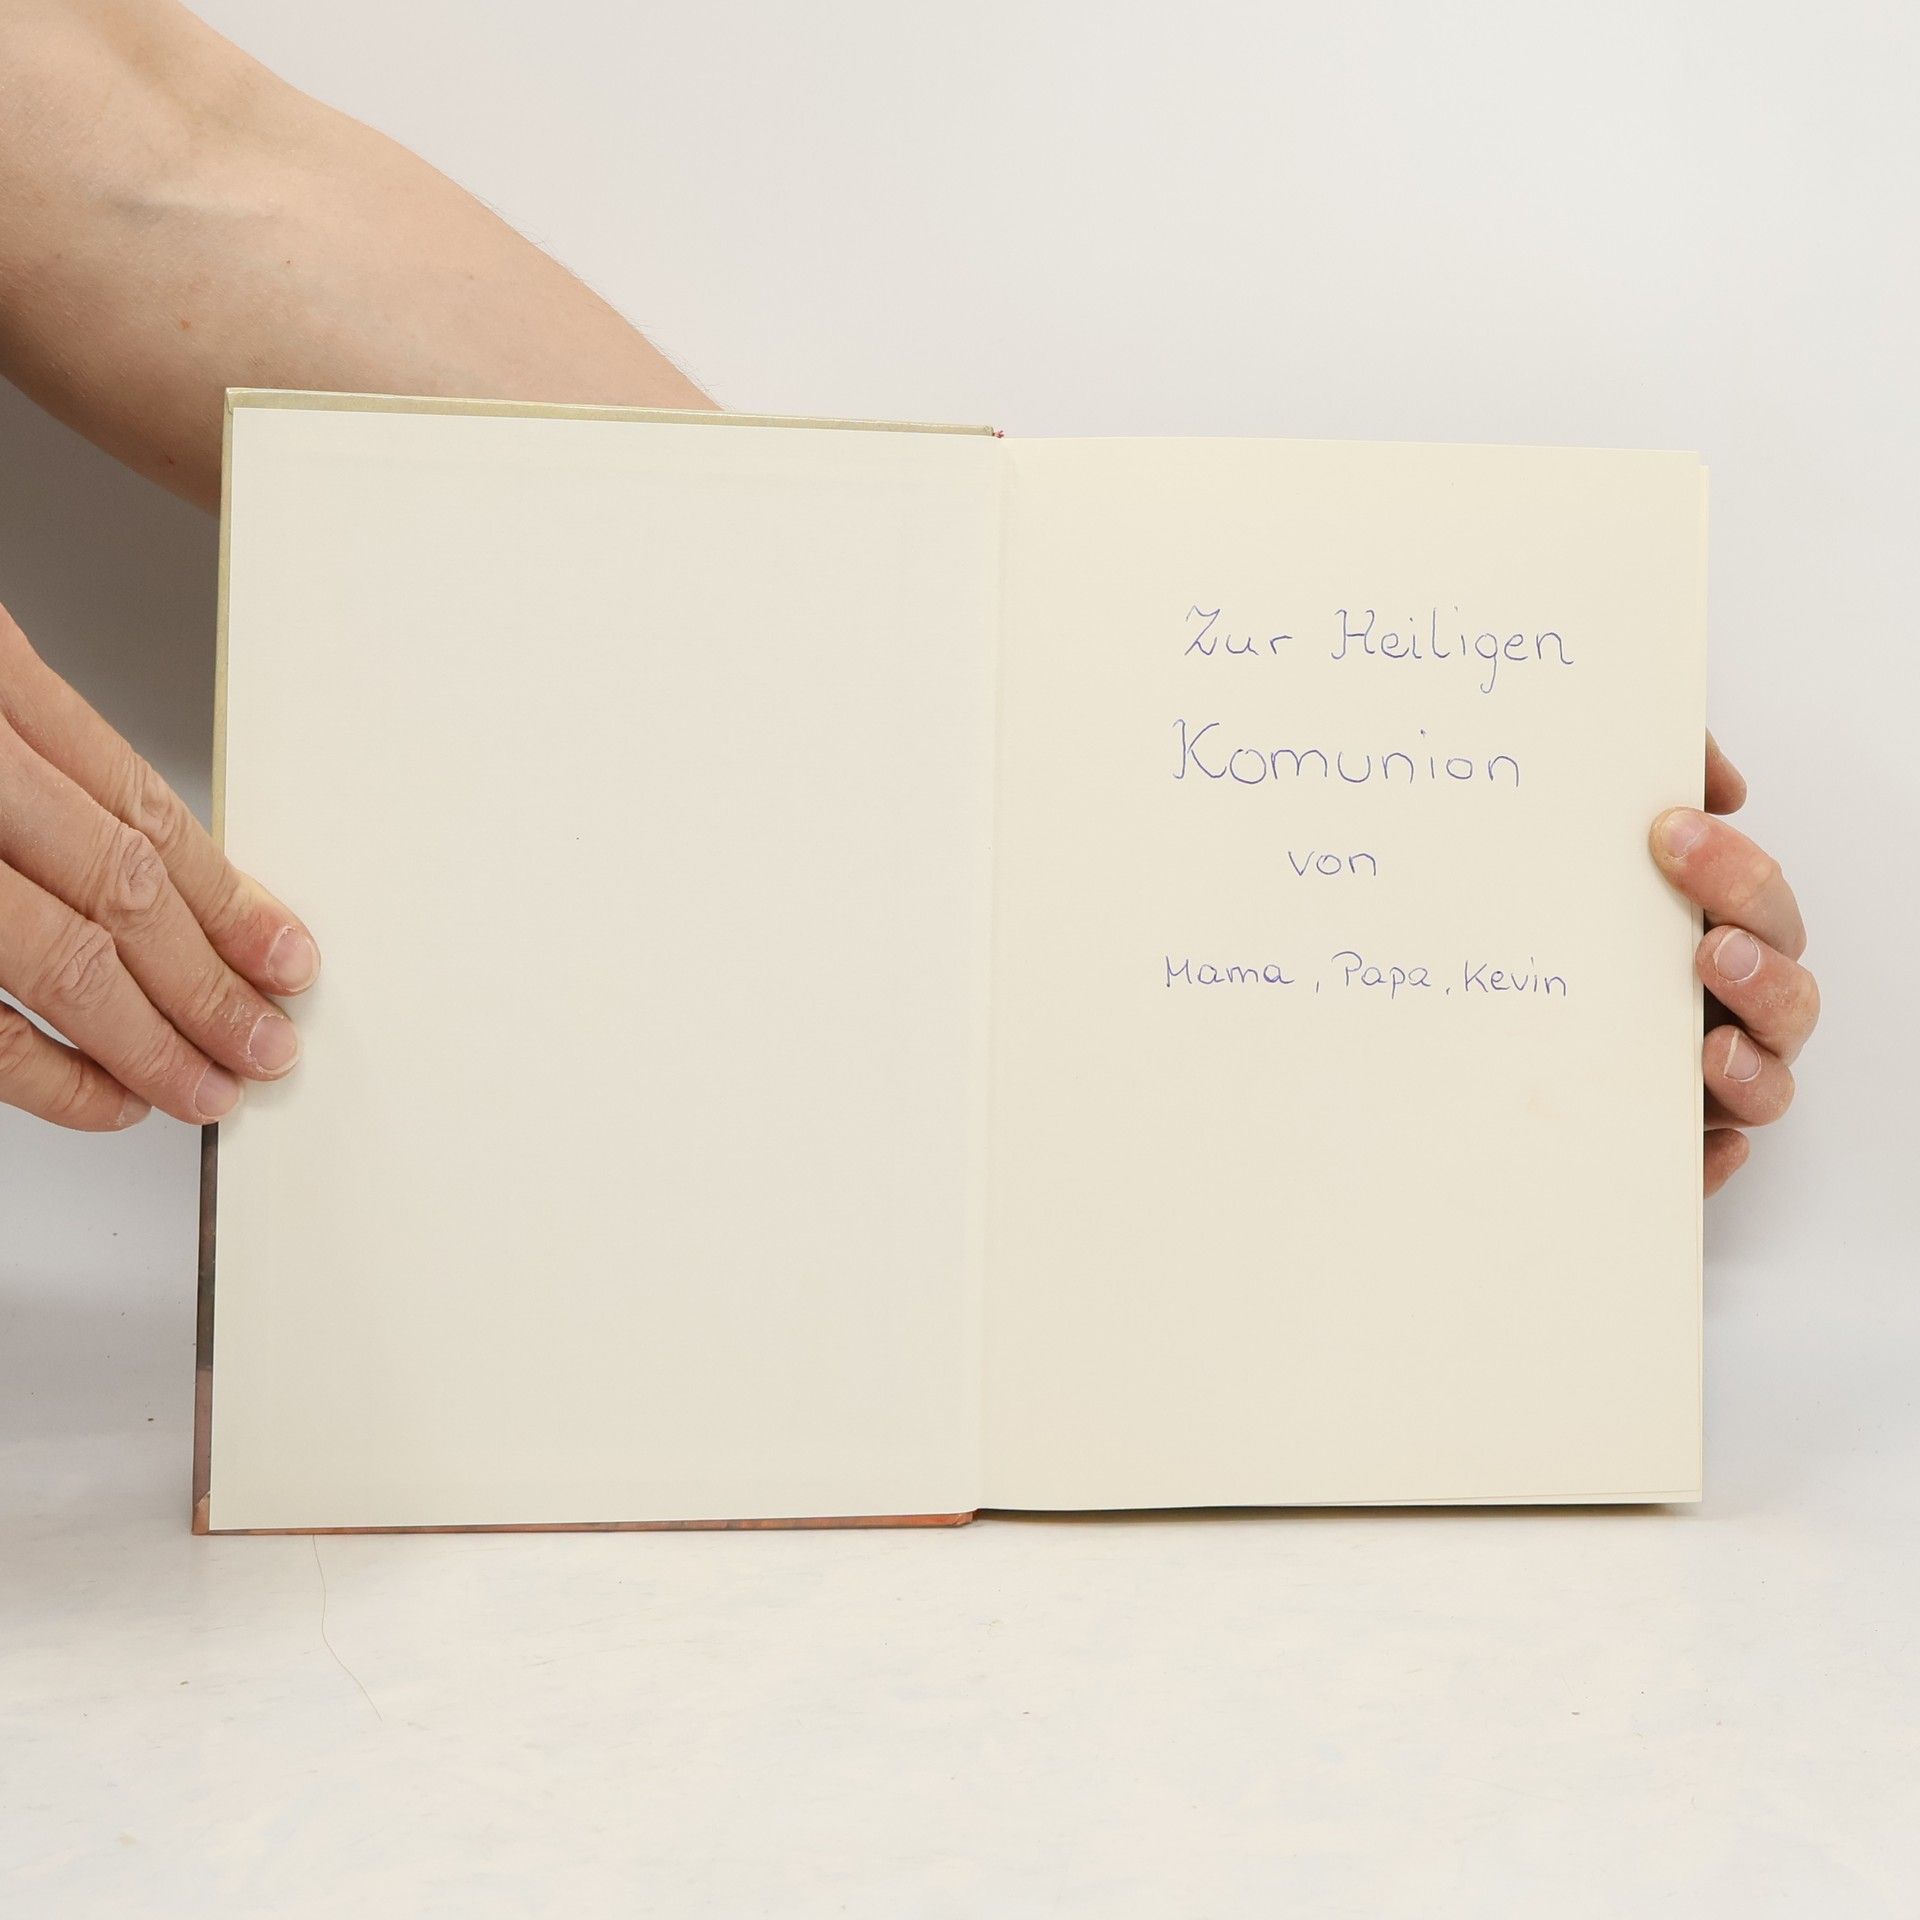 Zur Heiligen
Komunion
von
Mama, Papa, Kevin